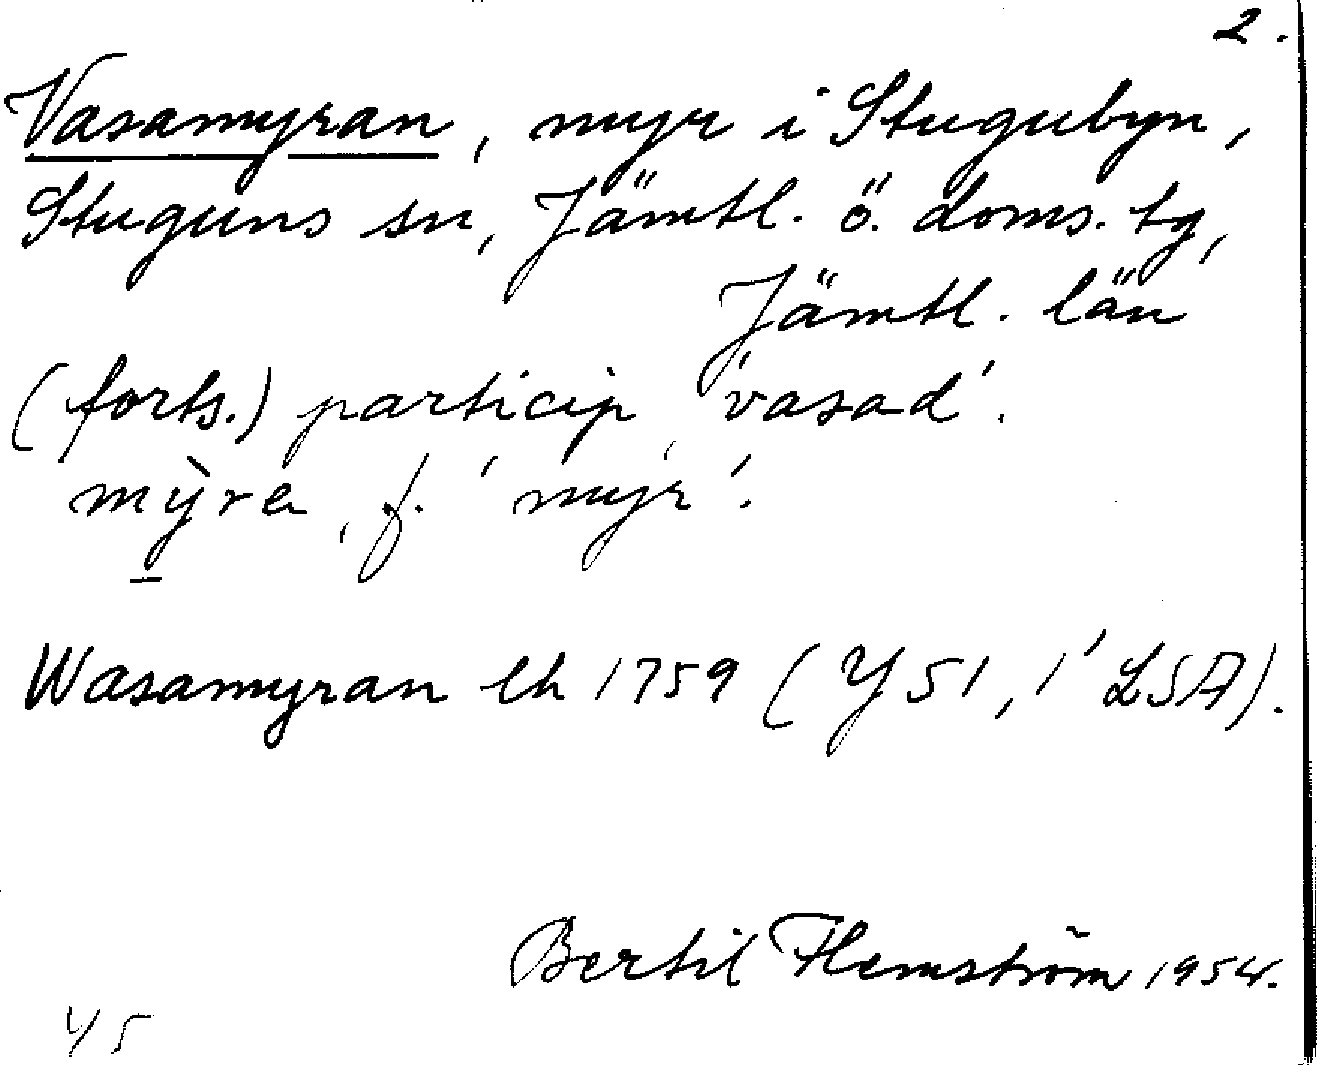 2.
Vasamyran, myr i Stugubyn,
Stuguns sn, Jämtl. ö. doms. tg,
Jämtl. län
(forts.) particip, 'vasad'.
mỳra, f. 'myr'.
Wasamyran lh 1759 (Y51, 1' LSA).
Bertil Flemström 1954.
4/5